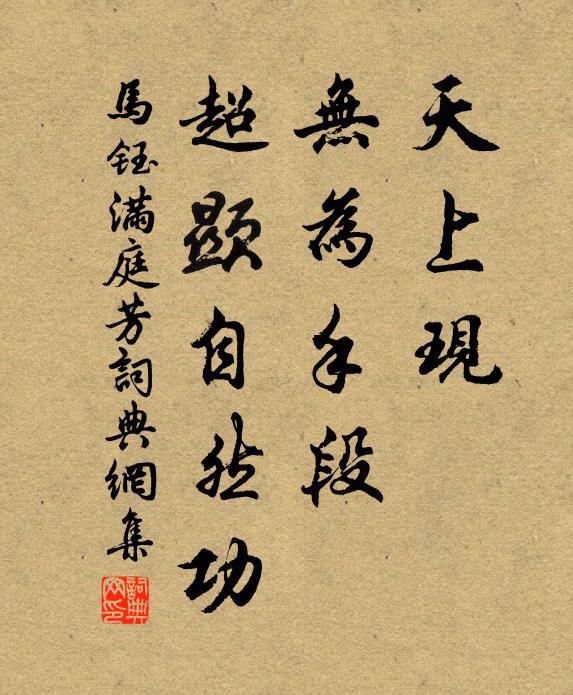 天上現
無為手段
超顯自然功
馬鈺滿庭芳詞典網集
詞典网印